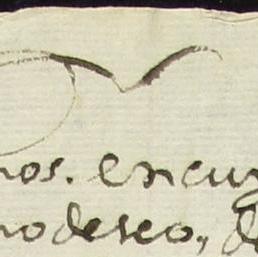 nos. encuy
no deseo, de